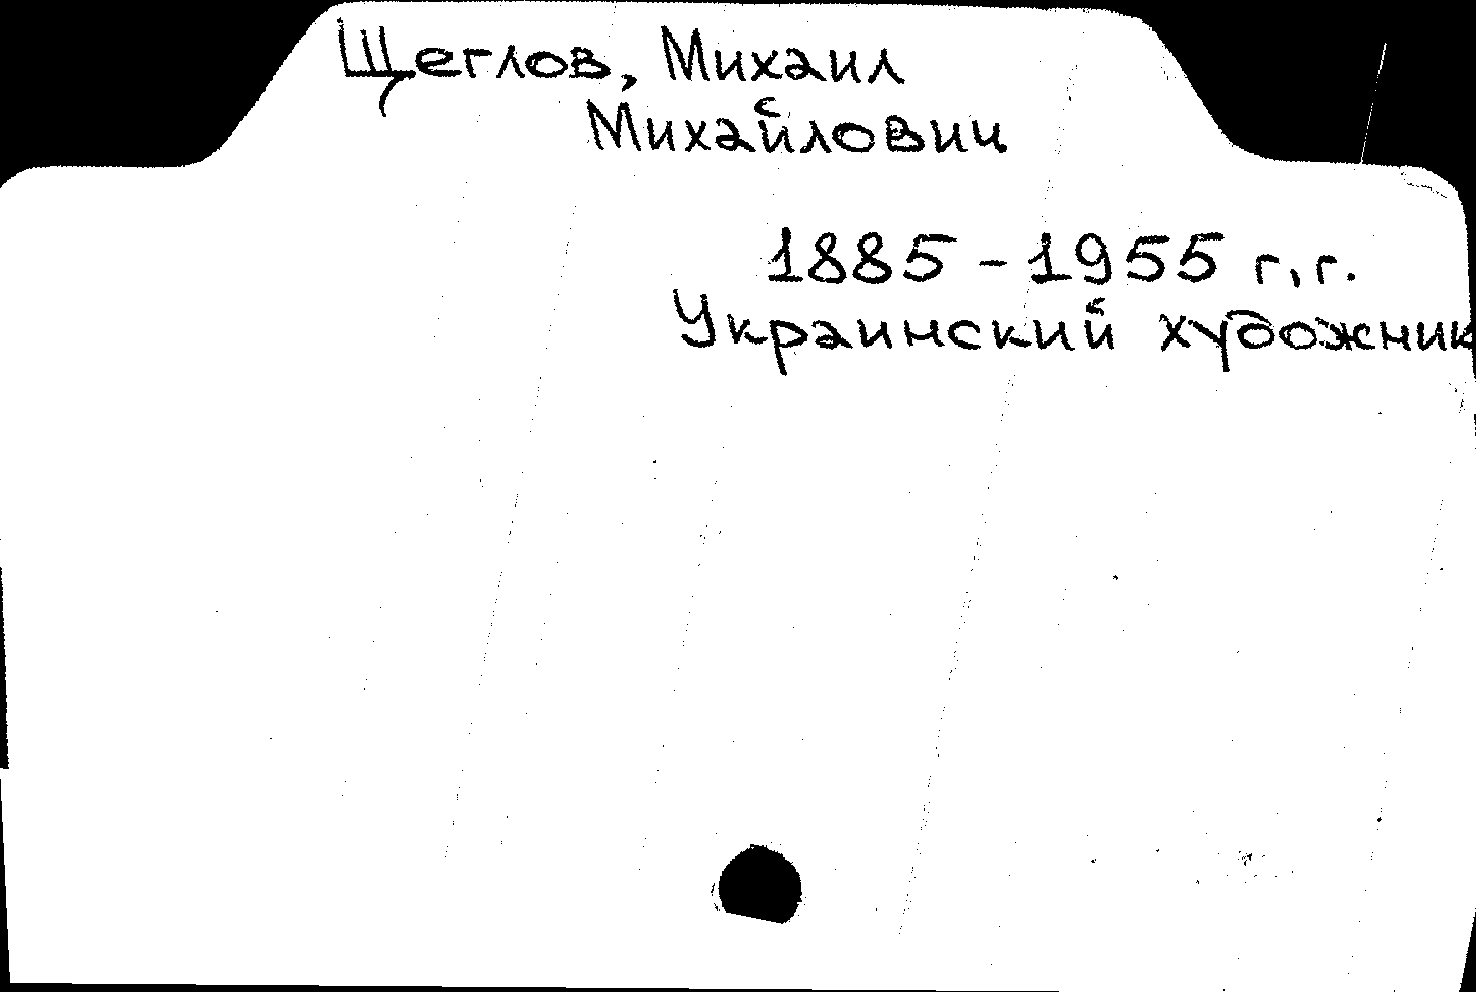 Щеглов, Михаил
Михайлович
1885-1955 г.г.
Украинский художник